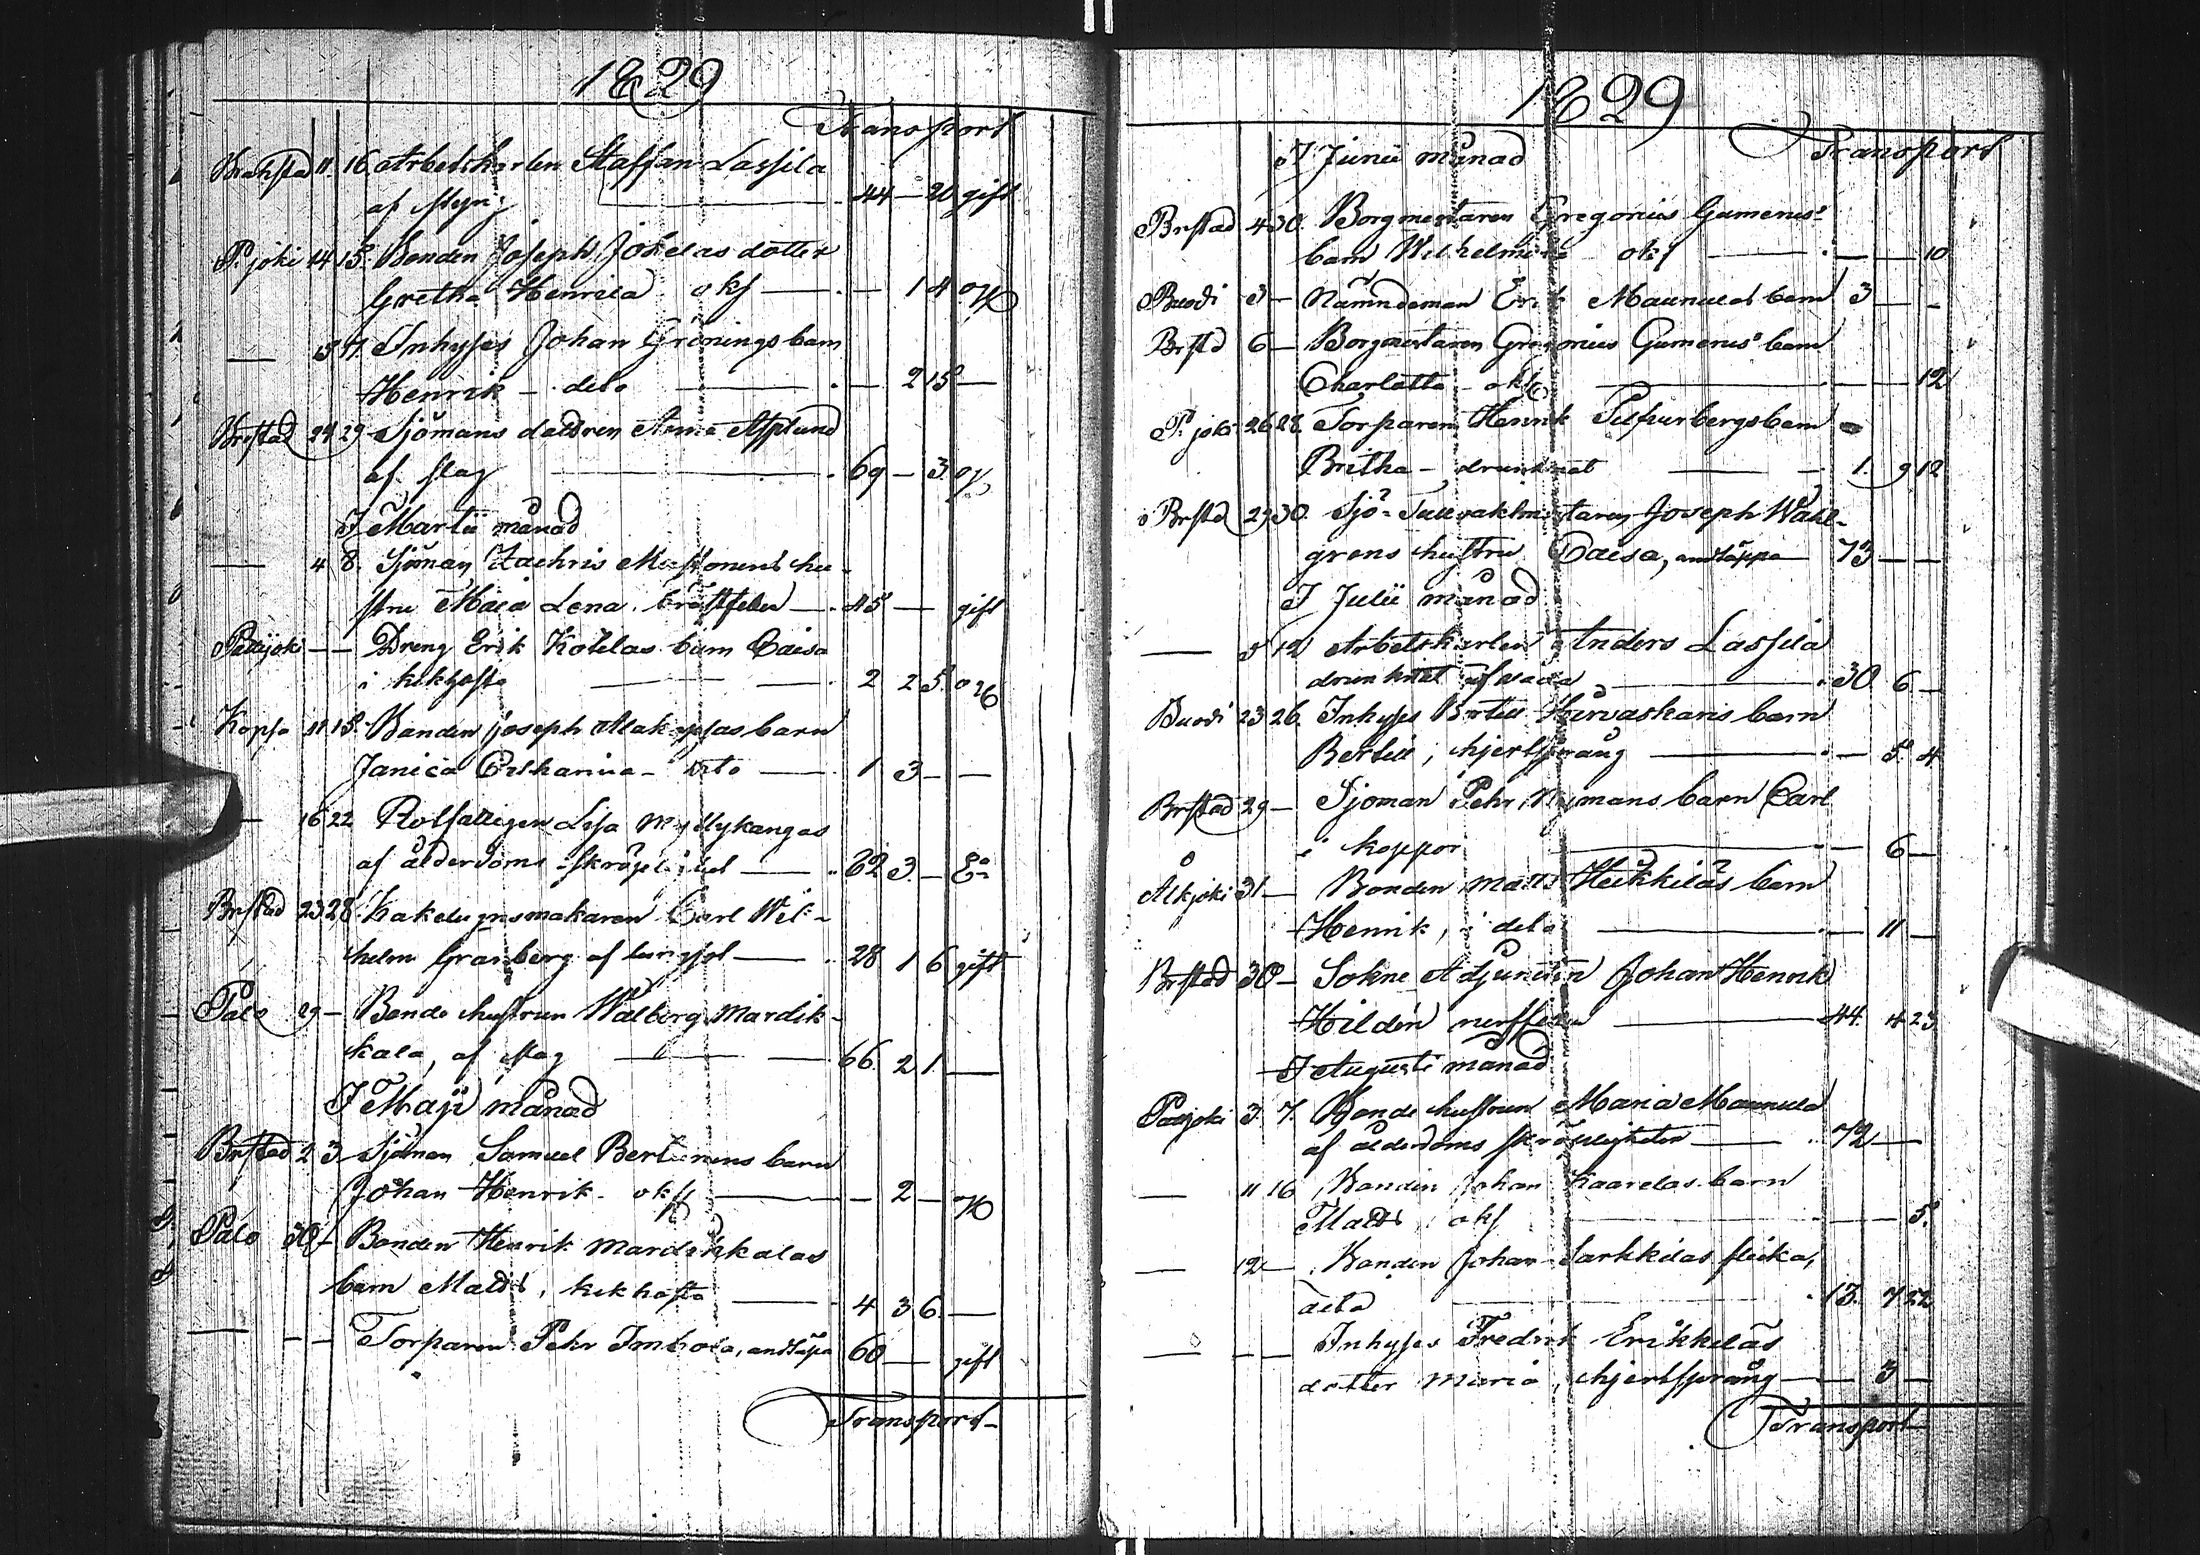 1829
Transport
Brahstad 11. 16. Arbetskarlen Staffan Lassila
af styng 44 — 20 gift
P.joki 14 15. Bonden Joseph Jokelas dotter
Gretha Henrica okf — — 1 4
— 15 17. Inhyses Johan Grönings barn
Henrik — dito — — 2 15 —
Brstad 24 29 Sjömans dottren Anna Asplund
af slag — 69 — 3
I Martii månad
— 4 8. Sjöman Zachris hu-
stru Maja Lena. bröstfeber — 45 — gift
Pattijoki — — Dreng Erik Kotilas barn Caisa
i kikhosta — 2 2 5.
Kopsa 11 15. Bonden Joseph Alakopsas barn
Janica Catharina — dito — 1 3 — —
— 16 22 Rotfattigen Lisa Myllykangas
af ålderdoms skröplighet — 62 3. — Ea
Brstad 23 28. Kakelugnsmakaren Carl Wil-
helm Granberg af lungsot — 28 1 6 gift
Palo 29 — Bonde hustrun Walborg Mardik-
kala, af slag — 66. 2 1 —
I Maji månad
Brstad 2 3 Sjöman Samuel Bertunens barn
Johan Henrik — okf — — 2 —
Palo 30 — Bonden Henrik Mardikkalas
barn Matts, kikhosta — 4 3 6. —
— — — Torparen Pehr Imbola, andtäpa 60 — gift
Transport
1829
I Junii månad Transport
Brstad 4 30. Borgmestaren Gregorius Gumerus'
barn Wilhelmina okf — — — 10
Buodi 3 — Nämndeman Erik Maunulas barn 3 — —
Brstd 6 — Borgmestaren Gregorius Gumerus' barn
Charlotta — okf — — — 12
P.joki 26 28. Torparen Henrik barn
Britha — drunknat — 1. 9 12
Brstd 29 30. Sjö-Tullvaktmestaren Joseph Wahl-
grens hustru Caisa, andtäppa 73 — —
I Julii månad
— 5 12 Arbetskarlen Anders Lassila
drunknat af våda — 30 6 —
Buodi 23 26. Inhyses Bertil Hirvaskaris barn
Bertil, hjertsprång — — 5. 4
Brstad 29 — Sjöman Pehr Nymans barn Carl
i koppor — — 6 —
Alkjoki 31 — Bonden Matts Heikkiläs barn
Henrik, i dito — — 11 —
Brstad 30 — Sokne Adjuncten Johan Henrik
Hildén nerffeber — 44. 4 23
I Augusti månad
Pattjoki 3. 7. Bonde hustrun Maria Maunula
af ålderdoms skröpligheter — 72 —
— 11 16 Bonden Johan Kaarelas barn
Matts okf — — — 5.
— 12 — Bonden Johan Sarkkilas flicka,
dito — 13. 7 22
— — — Inhyses Fredrik Erikkiläs
dotter Maria, hjertsprång — — 3 —
Transport